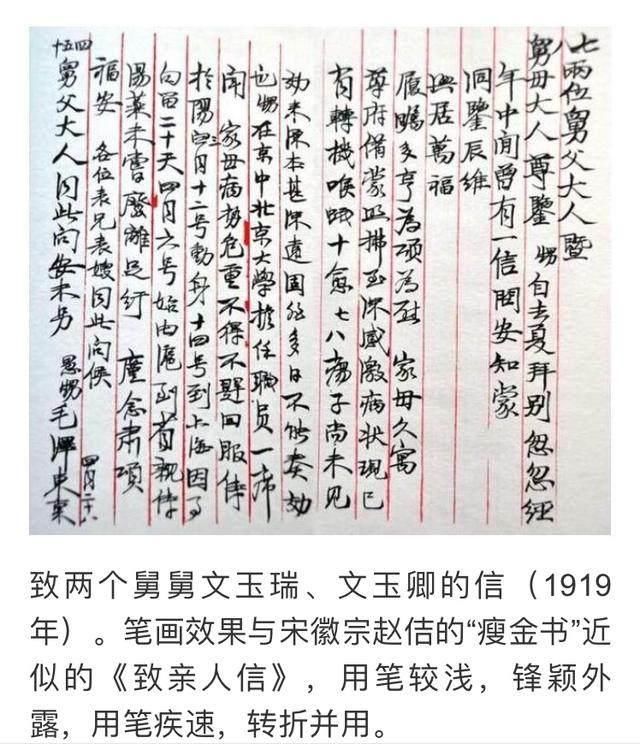 七八两位舅父大人暨
舅母大人尊鉴 甥自去夏拜别 忽忽经
年中间曾有一信问安知蒙
洞鉴辰维
兴居万福
履瞩多亨为颂为慰 家母久寓
尊府备蒙照拂至深感激病状现已
有转机喉蛾十愈七八疡子尚未见
效来源本甚深远固非多日不能奏效
也甥在京中北京大学担任职员一席
闻 家母病势危重不得不赶回服侍
于阳三月十二号动身十四号到上海因事
勾留二十天四月六号始由沪到省亲侍
汤药未尝废离足纾 廑念肃颂
福安 各位表兄表嫂同此问候
四五十舅父大人同此问安未另
愚甥毛泽东禀
四月二十八
致两个舅舅文玉瑞、文玉卿的信（1919
年）。笔画效果与宋徽宗赵佶的“瘦金书”近
似的《致亲人信》，用笔较浅，锋颖外
露，用笔疾速，转折并用。